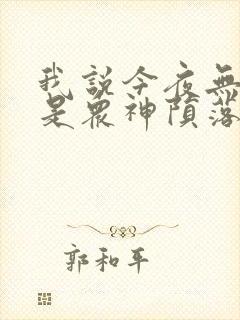 我說今夜無
是眾神隕落
郭和平